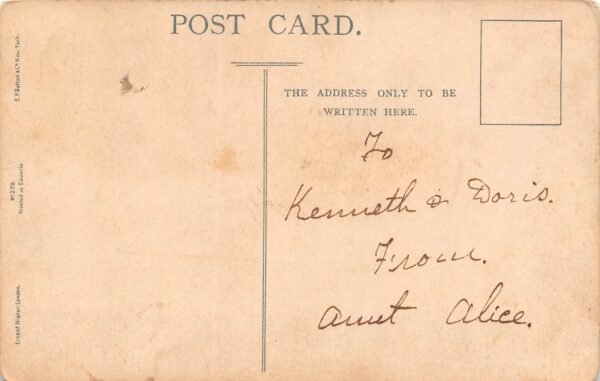 POST CARD.
THE ADDRESS ONLY TO BE
WRITTEN HERE.
To
Kenneth & Doris.
From.
Aunt Alice.
E.P. Dutton & Co. New York.
No 272.
Printed in Bavaria
Ernest Nister London.